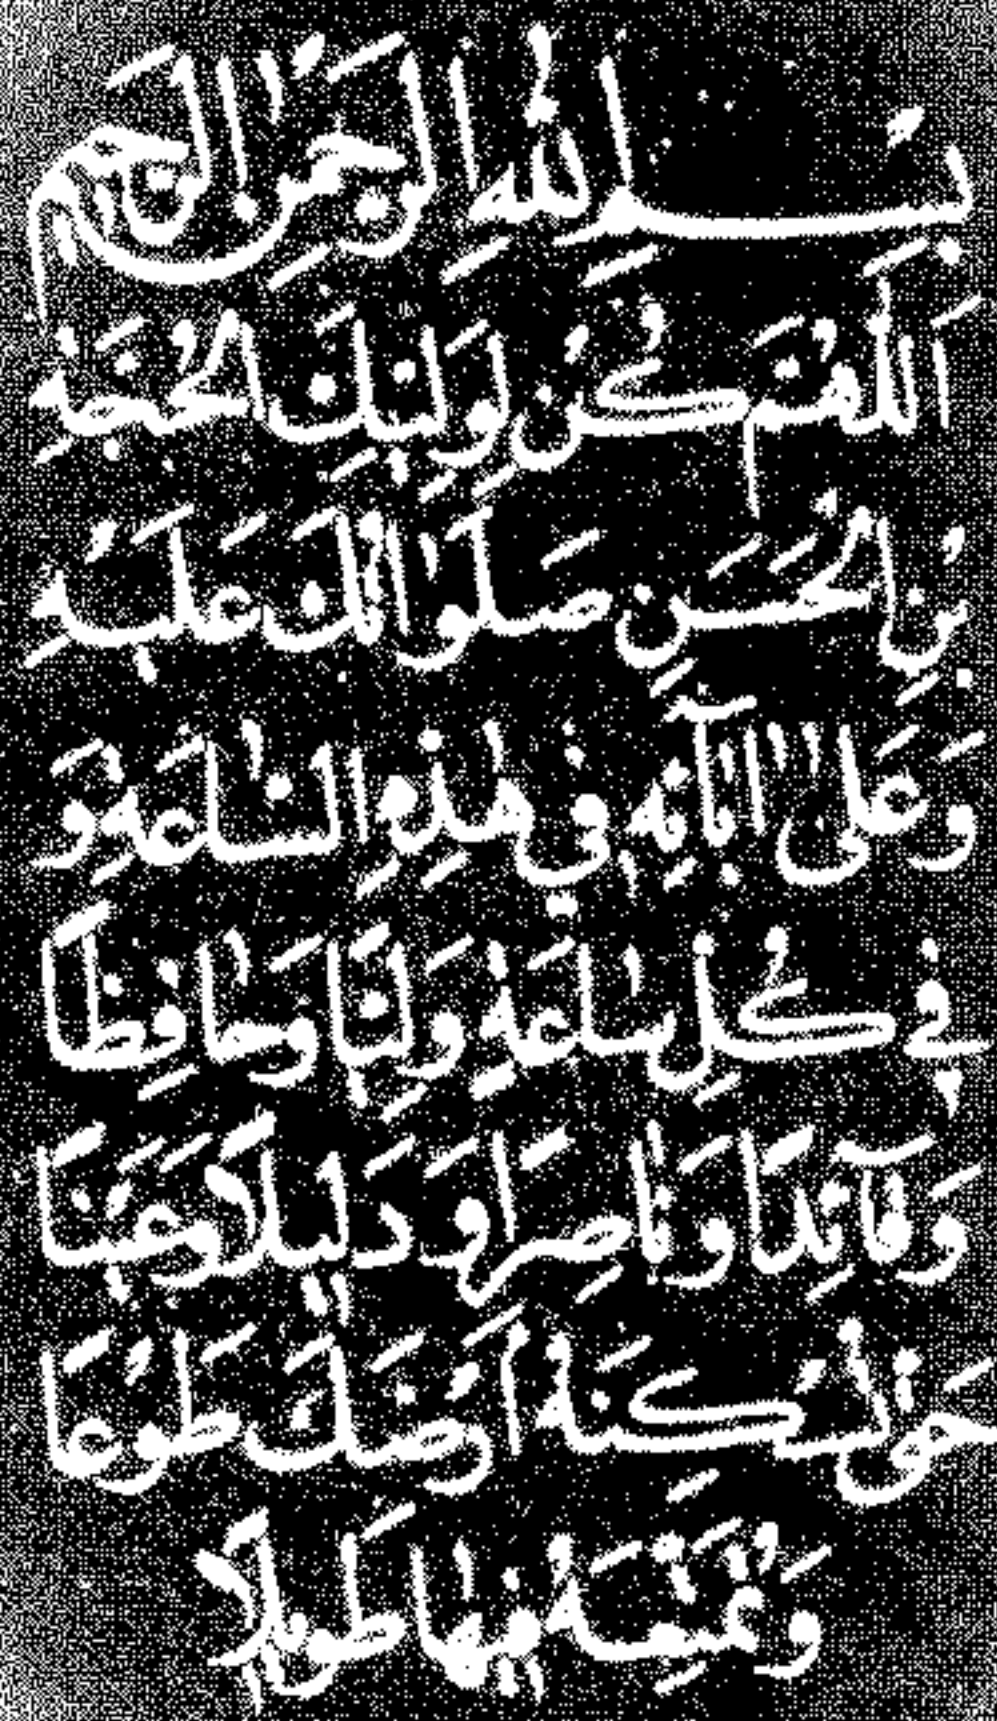 بِسْمِ اللهِ الرَّحْمٰنِ الرَّحِيمِ
اَللّٰهُمَّ كُنْ لِوَلِيِّكَ الْحُجَّةِ
بْنِ الْحَسَنِ صَلَوٰاتُكَ عَلَيْهِ
وَعَلىٰ اٰبٰآئِهِ في هٰذِهِ السّٰاعَةِ وَ
في كُلِّ سٰاعَةٍ وَلِيّاً وَحٰافِظاً
وَقٰآئِداً وَنٰاصِراً وَدَليلاً وَعَيْناً
حَتّىٰ تُسْكِنَهُ أَرْضَكَ طَوْعاً
وَتُمَتِّعَهُ فيهٰا طَويلاً